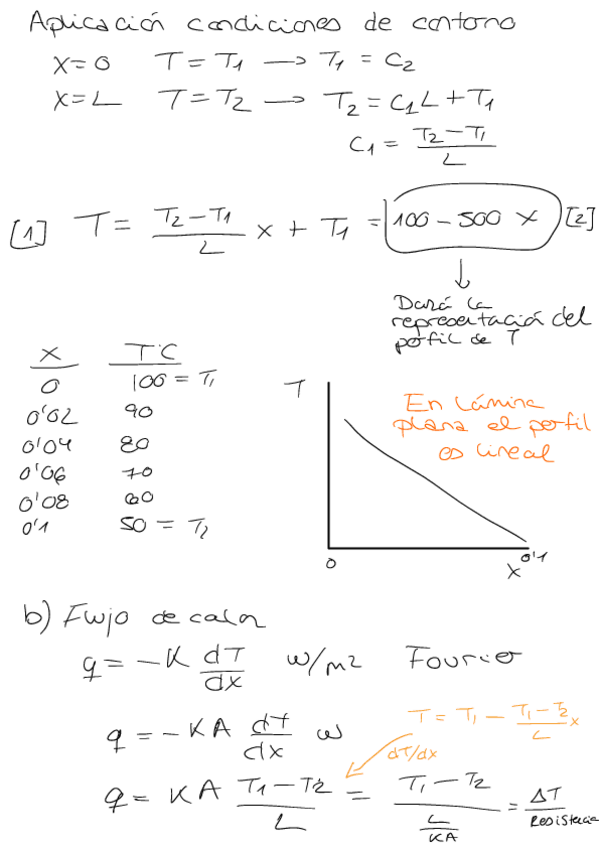 Aplicación condiciones de contorno
x=0 T=T1 → T1 = C2
x=L T=T2 → T2 = C1L + T1
C1 = (T2-T1)/L
[1] T = (T2-T1)/L x + T1 = 100 - 500 x [2]
Dará la
representación del
perfil de T
x T°C
0 100 = T1
0'02 90
0'04 80
0'06 70
0'08 60
0'1 50 = T2
T
En lámina
plana el perfil
es lineal
0 0'1
x
b) Flujo de calor
q = -K dT/dx w/m2 Fourier
q = -KA dT/dx w
T = T1 - (T1-T2)/L x
dT/dx
q = KA (T1-T2)/L = (T1-T2)/(L/KA) = ΔT/Resistencia